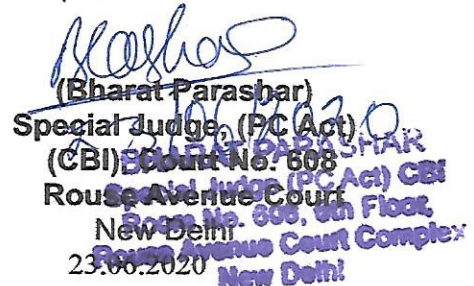 (Bharat Parashar)
Special Judge, (PC Act)
(CBI), Court No. 608
Rouse Avenue Court
New Delhi
23.06.2020
BHARAT PARASHAR
Special Judge (PC Act) CBI
Room No. 608, 6th Floor,
Rouse Avenue Court Complex
New Delhi